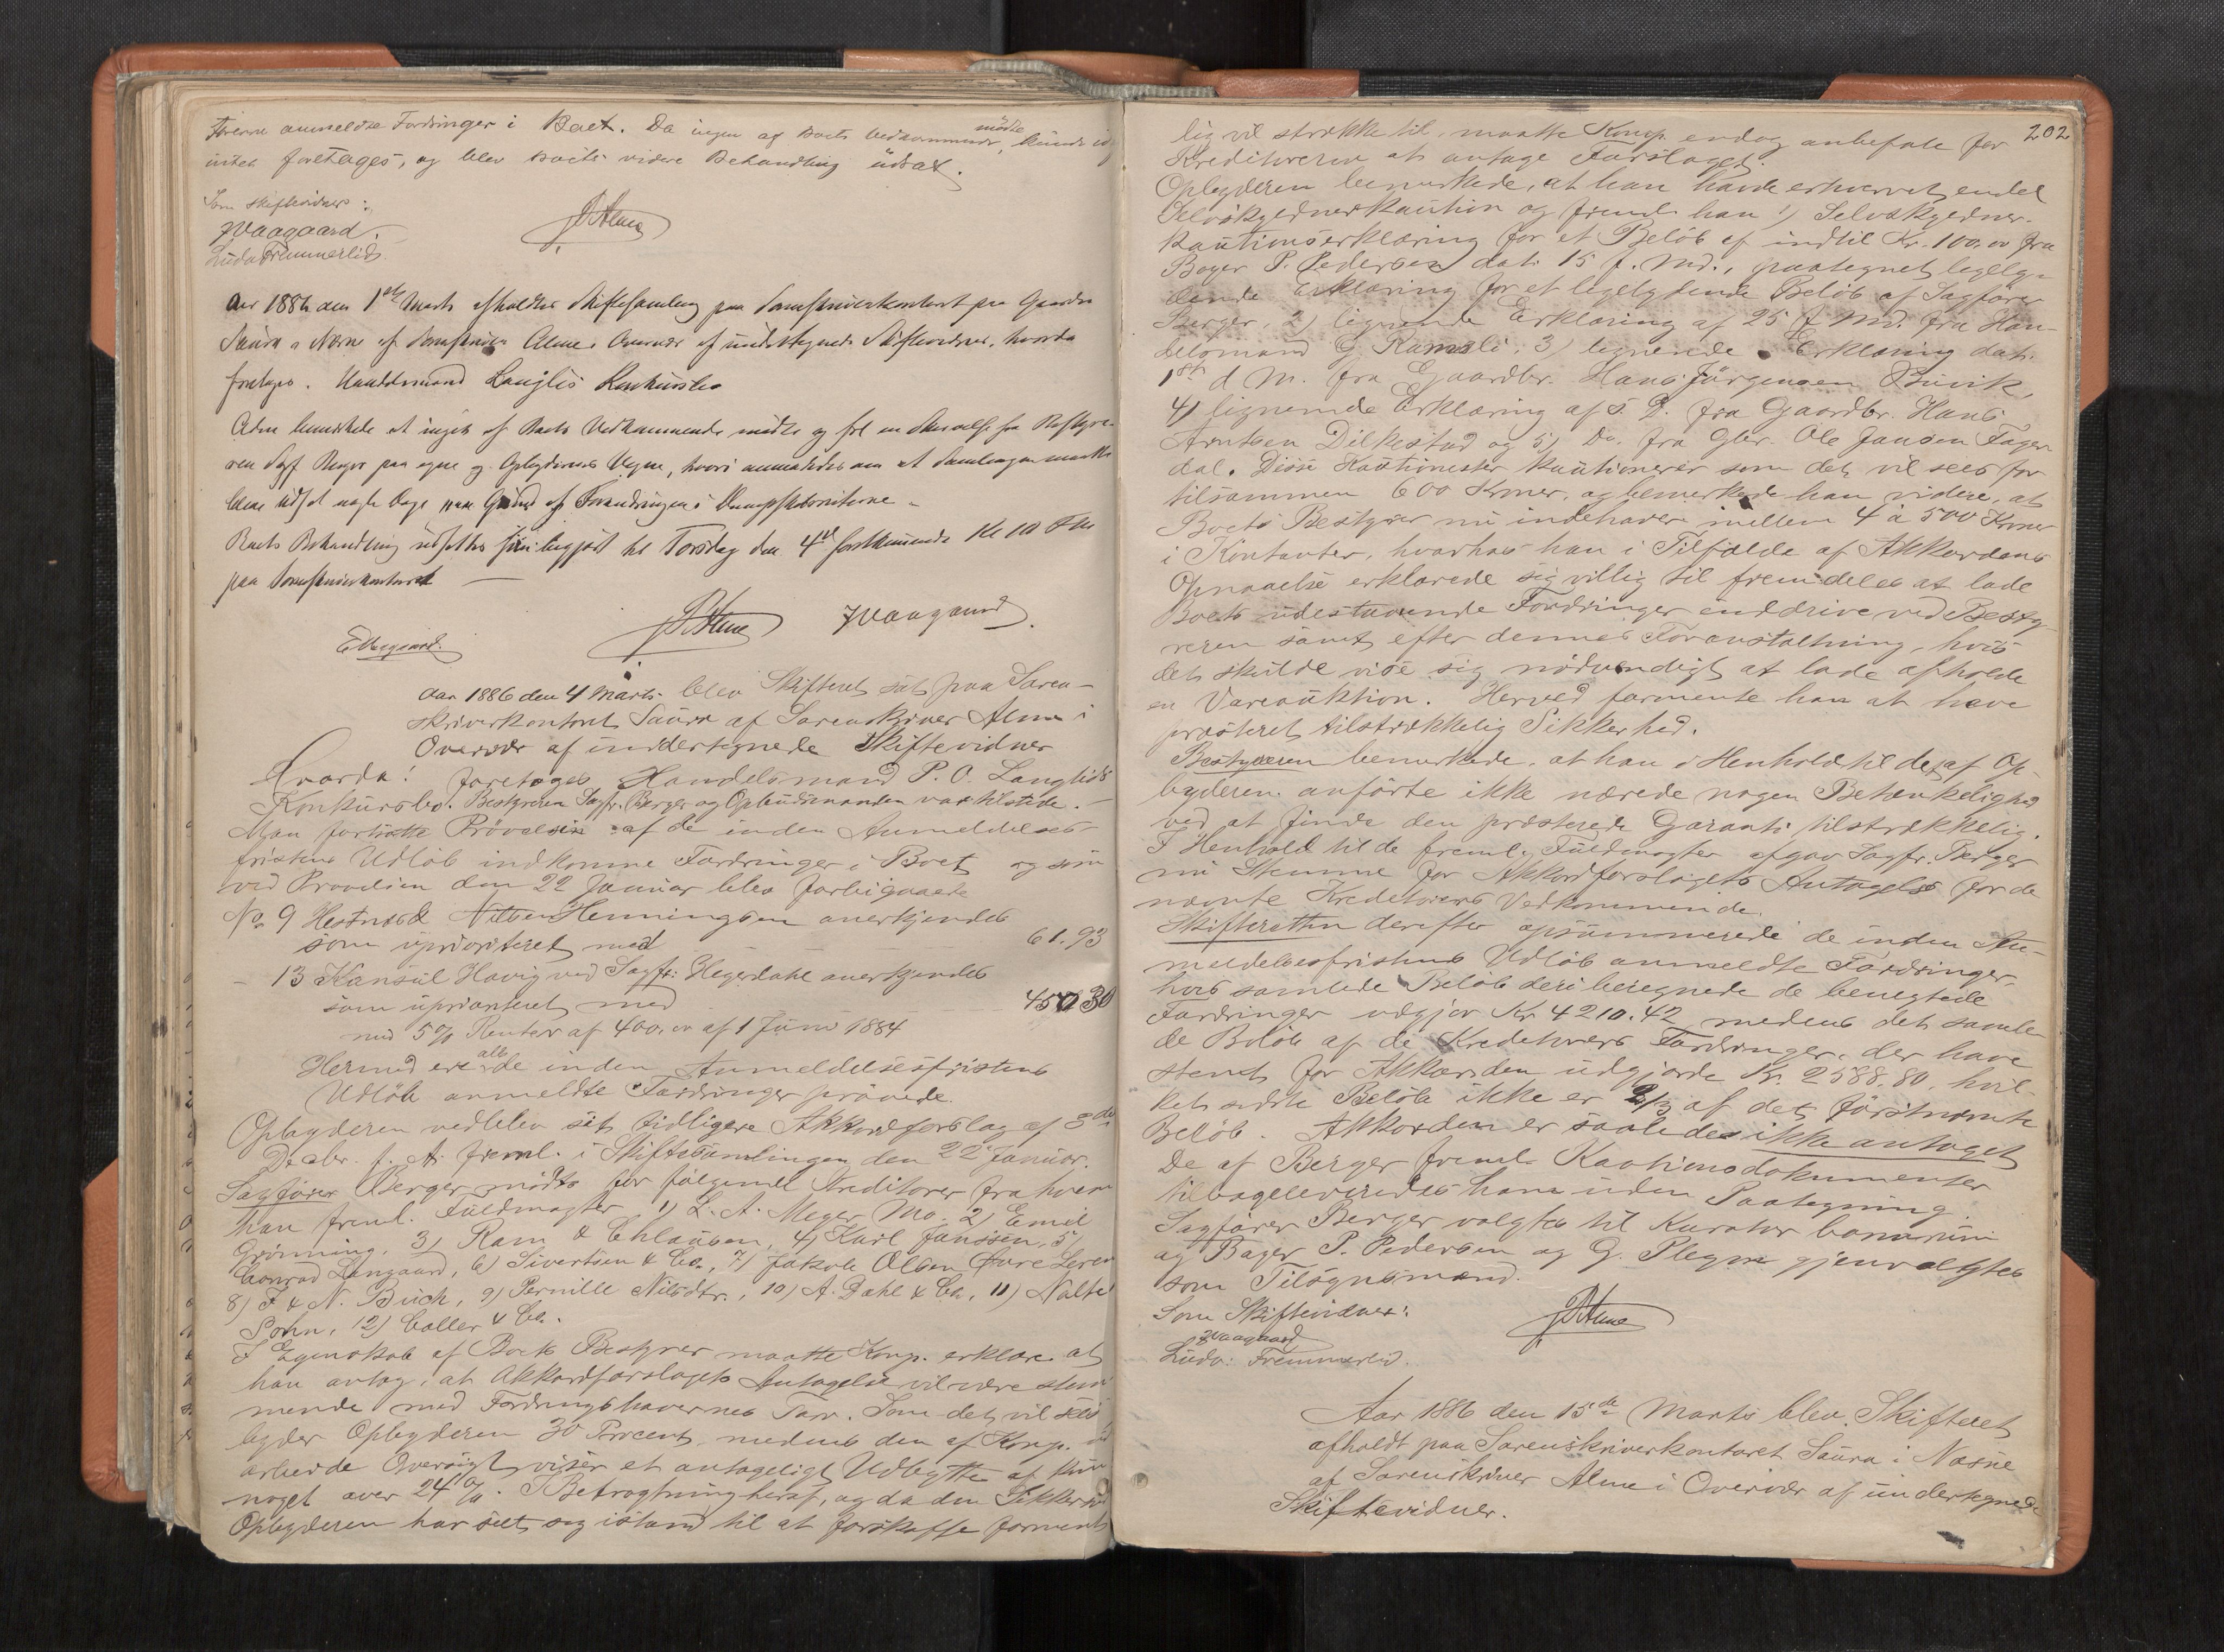 anmeldte Fordringer i Boet. Da ingen af Boets vedkommende mødte, kunde
intet foretages, og blev Boets videre Behandling udsat.
Som Skiftevidner:
JVaagaard.
Ludv. Fremmerlid
JAlme
Aar 1886 den 1ste Marts afholdtes Skiftesamling paa Sorenskriverkontoret paa Gaarden
Saura i Næsne af Sorenskriver Alme i Overvær af undertegnede Skiftevidner, hvorda
foretoges. Handelsmand Langlis Konkursbo
at ingen af Boets Vedkommende mødte og
ren Sagf. Berger paa egne og Opbyderens Vegne, hvori anmodedes om at Samlingen maatte
blive udsat nogle Dage paa Grund af Forandringer i
Boets Behandling udsattes til Torsdag den 4de førstkommende Kl 10 Fm
paa Sorenskriverkontoret
EVaagaard.
JAlme
JVaagaard.
Aar 1886 den 4 Marts blev Skifteret sat paa Soren-
skriverkontoret Saura af Sorenskriver Alme i
Overvær af undertegnede Skiftevidner
Hvorda: foretoges Handelsmand P. O. Langlids
Konkursbo. Bestyreren Sagfr. Berger og Opbudsmanden var tilstede. -
Man fortsatte Prøvelsen af de inden Anmeldelses-
fristens Udløb indkomne Fordringer i Boet og som
ved Prøvelsen den 22 Januar blev forbigaaede
No. 9 Hestnæs & Nilsen Henningsen anerkjendes
som uprioriteret med 61.93
- 13 Konsul Havig ved Sagfr: Hegerdahl anerkjendes
som uprioriteret med 450 30
med 5% Renter af 400,00 af 1 Juni 1884
Hermed ere alle de inden Anmeldelsesfristens
Udløb anmeldte Fordringer prøvede.
Opbyderen vedblev sit tidligere Akkordforslag af 3de
Decbr. f. A. freml. i Skiftesamlingen den 22 Januar.
Sagfører Berger mødte for følgende Kreditorer fra hvem
han freml. Fuldmagter 1) L. A. Meyer Mo. 2) Emil
Grönning, 3) Ram & Chlausen, 4) Karl Janssen, 5)
Conrad Langaard, 6) Sivertsen & Co., 7) Jakob Olsen
8) F & N. Buch, 9) Pernille Nilsdtr., 10) A. Dahl & Co, 11)
Sohn, 12) Coller & Co.
I Egenskab af Boets Bestyrer maatte Komp. erklære at
han antog, at Akkordforslagets Antagelse vil være stem
mende med Fordringshavernes Tarv. Som det vil sees
byder Opbyderen 30 Procent, medens den af Komp. ud
arbeide Oversigt viser et antageligt Udbytte af kun
noget over 24%. I Betragtning heraf, og da den Sikkerhed
Opbyderen har seet sig istand til at forskaffe forment
202
lig vil strække til, maatte Komp. endog anbefale for
Kreditorerne at antage Forslaget.
Opbyderen bemærkede, at han havde erhvervet endel
Selvskyldnerkaution og freml. han 1) Selvskyldner-
kautionserklæring for et Beløb af indtil Kr. 100.00 fra
Bager P. Pedersen dat. 15 f. Md., paategnet ligely-
dende Erklæring for et ligelydende Beløb af Sagfører
Berger, 2) lignende Erklæring af 25 f. Md. fra Han-
delsmand G. Ramsli, 3) lignende Erklæring dat.
1ste d M. fra Gaardbr. Hans Jørgensen Buvik,
4) lignende Erklæring af s. D. fra Gaardbr. Hans
Arntsen Dilkestad og 5) Do. fra Gbr. Ole Jansen Fager
dal. Disse Kautionister kautionerer som det vil sees for
tilsammen 600 Kroner, og bemærkede han videre, at
Boets Bestyrer nu indehaver mellem 4 à 500 Kroner
i Kontanter, hvorhos han i Tilfælde af Akkordens
Opnaaelse erklærede sig villig til fremdeles at lade
Boets udestaaende Fordringer inddrive ved Besty
reren samt efter dennes Foranstaltning, hvis
det skulde vise sig nødvendigt at lade afholde
en Vareauktion. Herved formente han at have
præsteret tilstrækkelig Sikkerhed.
Bestyreren bemærkede, at han i Henhold til det af Op-
byderen anførte ikke nærede nogen Betænkelighed
ved at finde den præsterede Garanti tilstrækkelig.
I Henhold til de freml. Fuldmagter afgav Sagfr. Berger
nu Stemme for Akkordforslagets Antagelse for de
nævnte Kreditorers Vedkommende.
Skifteretten derefter opsummerede de inden An-
meldelsesfristens Udløb anmeldte Fordringer,
hvis samlede Beløb deri beregnede de benegtede
Fordringer udgjør Kr 4210.42 medens det samle
de Beløb af de Kreditorers Fordringer, der have
stemt for Akkorden udgjorde Kr. 2588.80, hvil-
ket sidste Beløb ikke er 2/3 af det førstnævnte
Beløb. Akkorden er saaledes ikke antaget
De af Berger freml. Kautionsdokumenter
tilbageleveredes ham uden Paategning.
Sagfører Berger valgtes til Kurator bonorum
og Bager P. Pedersen og G. Plegne gjenvalgtes
som Tilsynsmænd.
Som Skiftevidner:
JVaagaard
Ludv: Fremmerlid.
JAlme
Aar 1886 den 15de Marts blev Skifteret
afholdt paa Sorenskriverkontoret Saura i Næsne
af Sorenskriver Alme i Overvær af undertegnede
Skiftevidner.